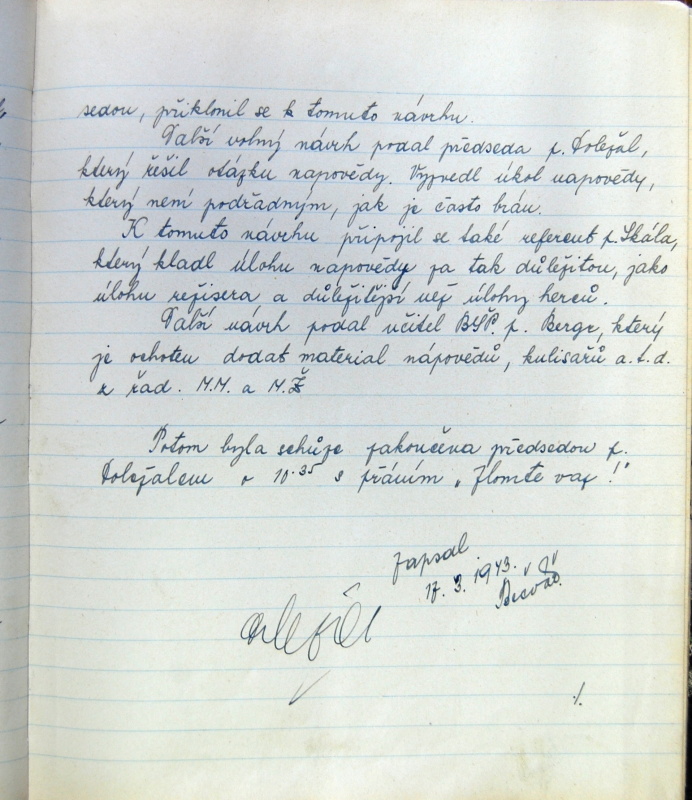 sedou, přiklonil se k tomuto návrhu.
Další volný návrh podal předseda p. Doležal,
který řešil otázku napovědy. Vyzvedl úkol napovědy,
který není podřadným, jak je často brán.
K tomuto návrhu připojil se také referent p. Skála,
který kladl úlohu napovědy za tak důležitou, jako
úlohu režisera a důležitější než úlohy herců.
Další návrh podal učitel p. Bergr, který
je ochoten dodat material nápovědů, kulisařů a.t.d.
z řad. M.M. a M.Ž
Potom byla schůze zakončena předsedou p.
Doležalem v 10.35 s přáním „Zlomte vaz!"
Zapsal
17. 3. 1943.
./.